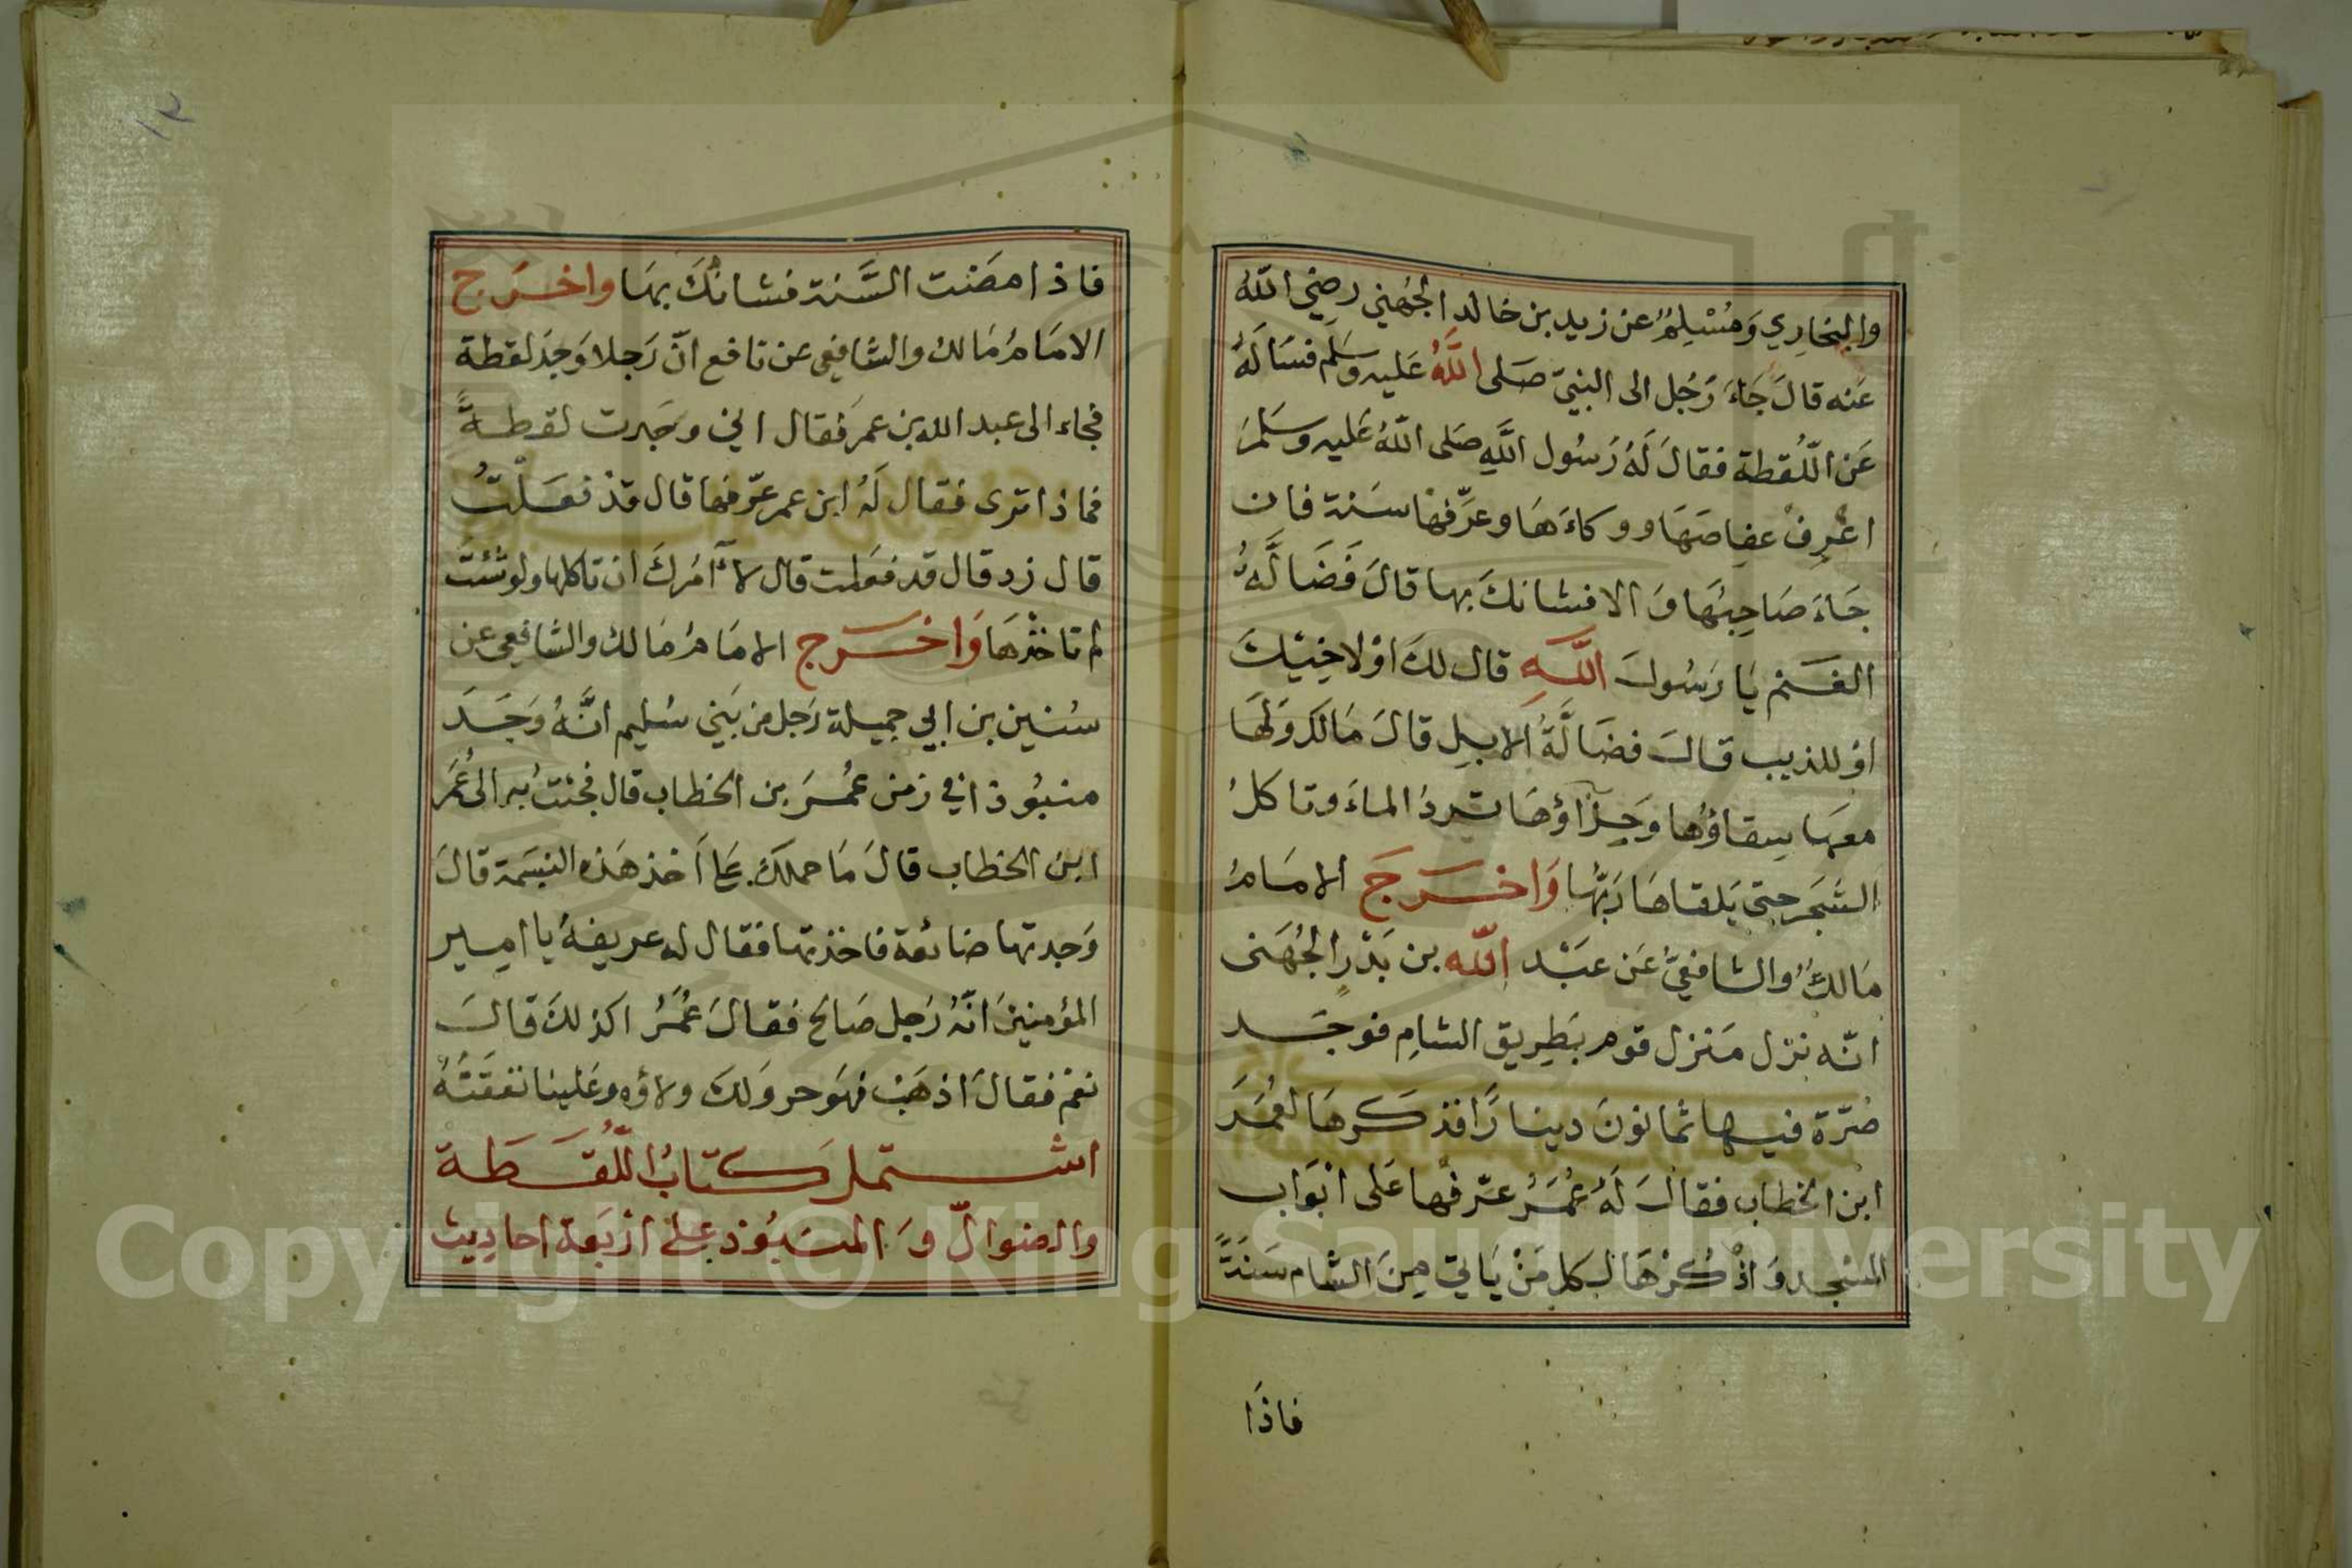 والبخاري وَمُسْلِمٌ عن زيد بن خالد الجُهَني رضي اللّٰهُ
عَنه قالَ جَاءَ رَجُل الى النبيّ صَلى اللَّهُ عَليه وسَلم فسَالَهُ
عَن اللّقطة فقالَ لَهُ رَسُول اللَّهِ صَلى اللّهُ عَليه وسَلمَ
اعْرِفْ عفِاصَهَا ووكاءَهَا وعرِّفها سَنة فان
جَاءَ صَاحِبُهَا وَالا فشانكَ بها قالَ فَضَالَّهُ
الغَنم يَا رَسُولَ اللَّهِ قال لكَ اوْ لاخِيْكَ
اوْ للذيب قالَ فضَالَّةُ الابِلِ قالَ مَالكَ وَلهَا
معهَا سِقاؤُها وَحِذآؤهَا تردُ الماءَ وتاكلُ
الشجَر حتىَ يَلقاهَا رَبّهَا وَاخرَجَ الامَامُ
مَالكٌ والشافعيُّ عَن عبَد اللّه بن بَدْرٍ الجُهَنى
انّه نزل مَنزل قوم بَطِريق الشامِ فوجَد
صُرّة فيها ثمانونَ دينارًا فذكرهَا لعُمَرَ
ابن الخطاب فقالَ لَهُ عُمَرُ عرّفها عَلى ابْوَاب
المسْجد وَاذْكُرْهَا لكل مَنْ يَاتيَ مِنَ الشام سَنةً
فاذَا
فاذا مضَت السَّنة فشانكَ بهَا واخرَج
الامَامُ مَالك والشافِعى عن نافع انّ رَجلا وَجدَ لقطة
فجاء الى عبد الله بن عمرَ فقال اني وجَدت لقطةً
فماذا ترى فقال لَهُ ابن عمر عرّفها قال قدْ فعَلْتُ
قال زد قال قد فعَلت قال لا آمُركَ ان تاكلها ولو شئتَ
لم تاخذْهَا وَاخرَج الامَامُ مَالك والشافعِى عن
سُنين بن ابي جميلة رَجل من بَني سُليم انَّهُ وَجَدَ
منبُوذا في زمن عُمرَ بن الخطاب قال فجئتُ بهِ الى عُمَر
ابن الخطاب قالَ مَا حملكَ علىَ اَخذ هَذه النسَمة قالَ
وَجدتها ضائعة فاخذتها فقال له عريفهُ يا امير
المؤمنينَ انّهُ رَجل صَالح فقالَ عُمَرُ اكذلكَ قالَ
نعَمْ فقالَ اذهَبْ فهَو حر وَلكَ ولاؤه وعَلينا نفقَتهُ
اشتمل كتابُ اللّقَطَة
والضوالّ وَالمنبُوذ على ارْبَعة احاديث
١٢
Copyright © King Saud University